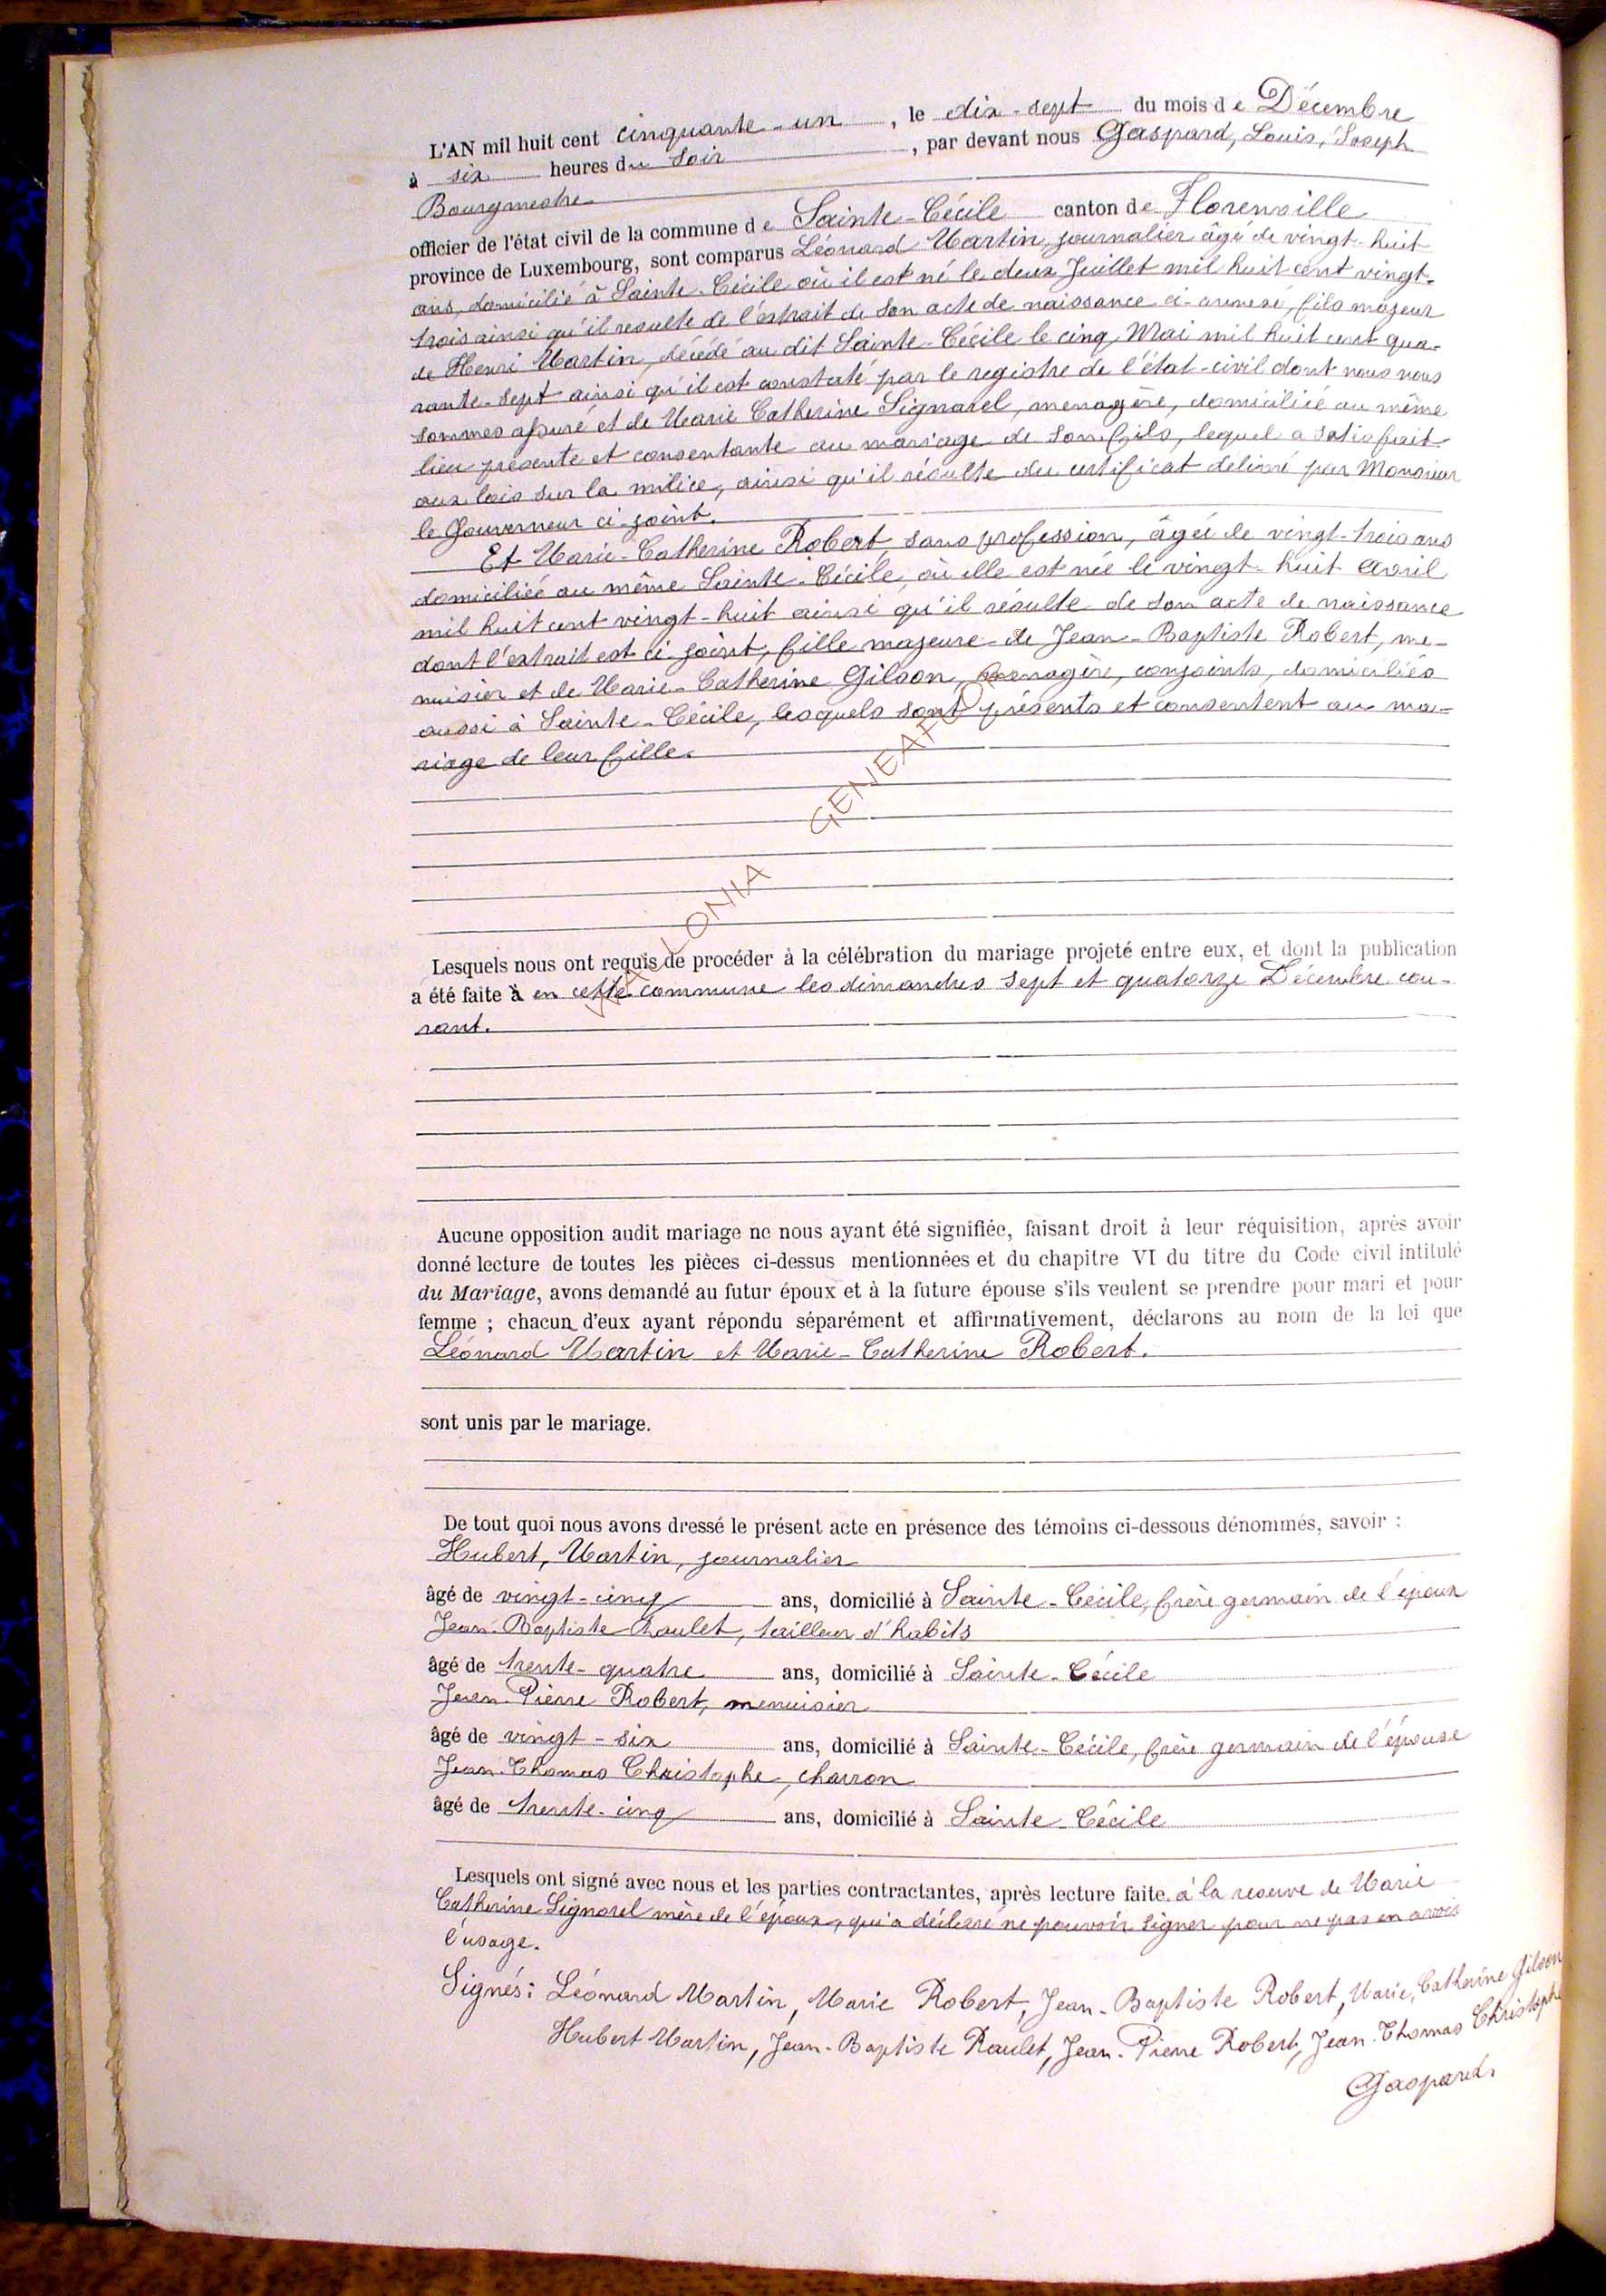 L'AN mil huit cent cinquante-un, le dix-sept du mois de Décembre
à six heures du soir, par devant nous Gaspard, Louis, Joseph
Bourgmestre
officier de l'état civil de la commune de Sainte-Cécile canton de Florenville
province de Luxembourg, sont comparus Léonard Martin, journalier âgé de vingt-huit
ans, domicilié à Sainte-Cécile où il est né le deux Juillet mil huit cent vingt-
trois ainsi qu'il resulte de l'extrait de son acte de naissance ci-annexé, fils majeur
de Henri Martin, décédé au dit Sainte-Cécile le cinq Mai mil huit cent qua-
rante-sept ainsi qu'il est constaté par le registre de l'état-civil dont nous nous
sommes assuré et de Marie Catherine Signorel, menagère, domiciliée au même
lieu presente et consentante au mariage de son fils, lequel a satisfait
aux lois sur la milice, ainsi qu'il résulte du certificat délivré par Monsieur
le Gouverneur ci-joint.
Et Marie-Catherine Robert, sans profession, âgée de vingt-trois ans
domiciliée au même Sainte-Cécile, où elle est née le vingt-huit avril
mil huit cent vingt-huit ainsi qu'il résulte de son acte de naissance
dont l'extrait est ci-joint, fille majeure de Jean-Baptiste Robert, me-
nuisier et de Marie-Catherine Gilson, menagère, conjoints, domiciliés
aussi à Sainte-Cécile, lesquels sont présents et consentent au ma-
riage de leur fille.
WALLONIA GENEAFLOR
Lesquels nous ont requis de procéder à la célébration du mariage projeté entre eux, et dont la publication
a été faite à en cette commune les dimanches sept et quatorze Décembre cou-
rant.
Aucune opposition audit mariage ne nous ayant été signifiée, faisant droit à leur réquisition, après avoir
donné lecture de toutes les pièces ci-dessus mentionnées et du chapitre VI du titre du Code civil intitulé
du Mariage, avons demandé au futur époux et à la future épouse s'ils veulent se prendre pour mari et pour
femme ; chacun d'eux ayant répondu séparément et affirmativement, déclarons au nom de la loi que
Léonard Martin et Marie-Catherine Robert.
sont unis par le mariage.
De tout quoi nous avons dressé le présent acte en présence des témoins ci-dessous dénommés, savoir :
Hubert, Martin, journalier
âgé de vingt-cinq ans, domicilié à Sainte-Cécile, frère germain de l'époux
Jean-Baptiste Raulet, tailleur d'habits
âgé de trente-quatre ans, domicilié à Sainte-Cécile
Jean-Pierre Robert, menuisier
âgé de vingt-six ans, domicilié à Sainte-Cécile, frère germain de l'épouse
Jean-Thomas Christophe, charron
âgé de trente-cinq ans, domicilié à Sainte-Cécile
Lesquels ont signé avec nous et les parties contractantes, après lecture faite. à la reserve de Marie
Catherine Signorel mère de l'époux, qui a déclaré ne pouvoir signer pour ne pas en avoir
l'usage.
Signés: Léonard Martin, Marie Robert, Jean-Baptiste Robert, Marie, Catherine Gilson
Hubert Martin, Jean-Baptiste Raulet, Jean-Pierre Robert, Jean-Thomas Christophe
Gaspard.